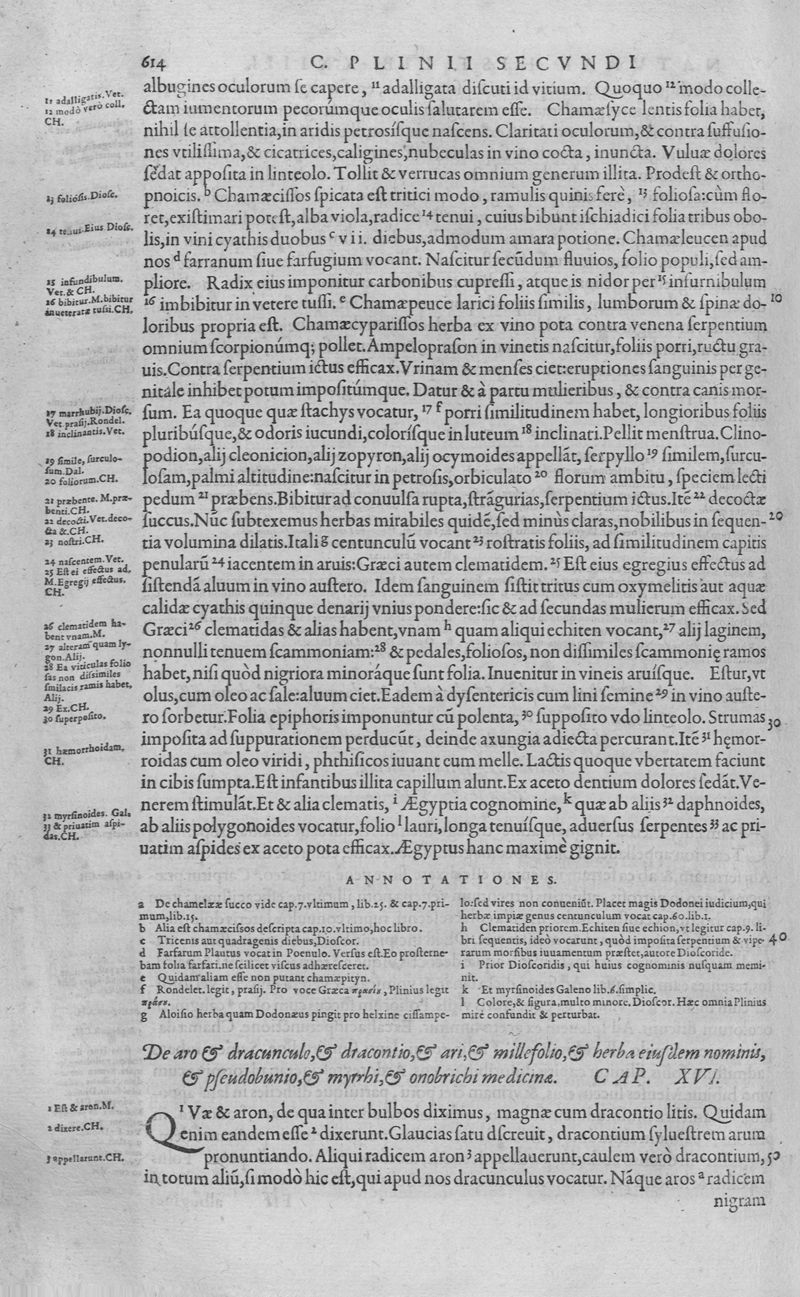 614 C. PLINII SECVNDI
albugines oculorum ſe capere, ¹¹ adalligata diſcuti id vitium. Quoquo ¹² modo colle-
ctam iumentorum pecorúmque oculis ſalutarem eſſe. Chamæſyce lentis folia habet,
nihil ſe attollentia, in aridis petroſíſque naſcens. Claritati oculorum, & contra ſuffuſio-
nes vtiliſſima, & cicatrices, caligines, nubeculas in vino cocta, inuncta. Vuluæ dolores
ſedat appoſita in linteolo. Tollit & verrucas omnium generum illita. Prodeſt & ortho-
pnoicis. ᵇ Chamæciſſos ſpicata eſt tritici modo, ramulis quinis ferè, ¹³ folioſa: cùm flo-
ret, exiſtimari poteſt, alba viola, radice ¹⁴ tenui, cuius bibunt iſchiadici folia tribus obo-
lis, in vini cyathis duobus ᶜ vii. diebus, admodum amara potione. Chamæleucen apud
nos ᵈ farranum ſiue farfugium vocant. Naſcitur ſecũdum fluuios, folio populi, ſed am-
pliore. Radix eius imponitur carbonibus cupreſſi, atque is nidor per ¹⁵ infurnibulum
¹⁶ imbibitur in vetere tuſſi. ᵉ Chamæpeuce larici foliis ſimilis, lumborum & ſpinæ do- 10
loribus propria eſt. Chamæcypariſſos herba ex vino pota contra venena ſerpentium
omnium ſcorpionúmq; pollet. Ampelopraſon in vinetis naſcitur, foliis porri, ructu gra-
uis. Contra ſerpentium ictus efficax. Vrinam & menſes ciet: eruptiones ſanguinis per ge-
nitale inhibet potum impoſitúmque. Datur & à partu mulieribus, & contra canis mor-
ſum. Ea quoque quæ ſtachys vocatur, ¹⁷ ᶠ porri ſimilitudinem habet, longioribus foliis
pluribúſque, & odoris iucundi, coloríſque in luteum ¹⁸ inclinati. Pellit menſtrua. Clino-
podion, alij cleonicion, alij zopyron, alij ocymoides appellãt, ſerpyllo ¹⁹ ſimilem, ſurcu-
loſam, palmi altitudine: naſcitur in petroſis, orbiculato ²⁰ florum ambitu, ſpeciem lecti
pedum ²¹ præbens. Bibitur ad conuulſa rupta, ſtrãgurias, ſerpentium ictus. Itẽ ²² decoctæ
ſuccus. Nũc ſubtexemus herbas mirabiles quidẽ, ſed minùs claras, nobilibus in ſequen- 20
tia volumina dilatis. Itali ᵍ centunculũ vocant ²³ roſtratis foliis, ad ſimilitudinem capitis
penularũ ²⁴ iacentem in aruis: Græci autem clematidem. ²⁵ Eſt eius egregius effectus ad
ſiſtendã aluum in vino auſtero. Idem ſanguinem ſiſtit tritus cum oxymelitis aut aquæ
calidæ cyathis quinque denarij vnius pondere: ſic & ad ſecundas mulierum efficax. Sed
Græci ²⁶ clematidas & alias habent, vnam ʰ quam aliqui echiten vocant, ²⁷ alij laginem,
nonnulli tenuem ſcammoniam: ²⁸ & pedales, folioſos, non diſſimiles ſcammonię ramos
habet, niſi quòd nigriora minoráque ſunt folia. Inuenitur in vineis aruíſque. Eſtur, vt
olus, cum oleo ac ſale: aluum ciet. Eadem à dyſentericis cum lini ſemine ²⁹ in vino auſte-
ro ſorbetur. Folia epiphoris imponuntur cũ polenta, ³⁰ ſuppoſito vdo linteolo. Strumas 30
impoſita ad ſuppurationem perducũt, deinde axungia adiecta percurant. Itẽ ³¹ hęmor-
roidas cum oleo viridi, phthiſicos iuuant cum melle. Lactis quoque vbertatem faciunt
in cibis ſumpta. Eſt infantibus illita capillum alunt. Ex aceto dentium dolores ſedãt. Ve-
nerem ſtimulãt. Et & alia clematis, ⁱ Ægyptia cognomine, ᵏ quæ ab aliis ³² daphnoides,
ab aliis polygonoides vocatur, folio ˡ lauri, longa tenuíſque, aduerſus ſerpentes ³³ ac pri-
uatim aſpides ex aceto pota efficax. Ægyptus hanc maximè gignit.
11 adalligatis. Vet.
12 modò verò coll.
CH.
13 folióſis. Dioſc.
14 tenuis Eius Dioſc.
15 infundibulum.
Vet. & CH.
16 bibitur. M. bibitur
inueteratæ tuſsi. CH.
17 marrhubij. Dioſc.
Vet. praſij. Rondel.
18 inclinantis. Vet.
19 ſimile, ſurculo-
ſum. Dal.
20 foliorum. CH.
21 præbente. M. præ-
benti. CH.
22 decocti. Vet. deco-
cta &. CH.
23 noſtri. CH.
24 naſcentem. Vet.
25 Eſt ei effectus ad,
M. Egregij effectus.
CH.
26 clematidem ha-
bent vnam. M.
27 alteram quam ly-
gon. Alij.
28 Ea viticulas folio
ſas non diſsimiles
ſmilacis ramis habet,
Alij.
29 Ex. CH.
30 ſuperpoſito.
31 hæmorrhoidam.
CH.
32 myrſinoides. Gal.
33 & priuatim aſpi-
das. CH.
ANNOTATIONES.
a De chamelææ ſucco vide cap. 7. vltimum, lib. 25. & cap. 7. pri-
mum, lib. 15.
b Alia eſt chamæciſsos deſcripta cap. 10. vltimo, hoc libro.
c Tricenis aut quadragenis diebus, Dioſcor.
d Farfarum Plautus vocat in Poenulo. Verſus eſt. Eo proſterne-
bam folia farfari. ne ſcilicet viſcus adhæreſceret.
e Quidam aliam eſſe non putant chamæpityn.
f Rondelet. legit, praſij. Pro voce Græca πρασίε, Plinius legit
πράσε.
g Aloiſio herba quam Dodonæus pingit pro helxine ciſſampe-
lo: ſed vires non conueniũt. Placet magis Dodonei iudicium, qui
herbæ impiæ genus centunculum vocat cap. 60. lib. 1.
h Clematiden priorem. Echiten ſiue echion, vt legitur cap. 9. li-
bri ſequentis, ideò vocarunt, quòd impoſita ſerpentium & vipe- 40
rarum morſibus iuuamentum præſtet, autore Dioſcoride.
i Prior Dioſcoridis, qui huius cognominis nuſquam memi-
nit.
k Et myrſinoides Galeno lib. 6. ſimplic.
l Colore, & figura, multo minore. Dioſcor. Hæc omnia Plinius
mirè confundit & perturbat.
De aro & dracunculo, & dracontio, & ari, & millefolio, & herba eiuſdem nominis,
& pſeudobunio, & myrrhi, & onobrichi medicina. CAP. XVI.
¹ QVæ & aron, de qua inter bulbos diximus, magnæ cum dracontio litis. Quidam
enim eandem eſſe ² dixerunt. Glaucias ſatu dſcreuit, dracontium ſylueſtrem arum
pronuntiando. Aliqui radicem aron ³ appellauerunt, caulem verò dracontium, 50
in totum aliũ, ſi modò hic eſt, qui apud nos dracunculus vocatur. Nãque aros ᵃ radicem
nigram
1 Eſt & aron. M.
2 dixere. CH.
3 appellarunt. CH.